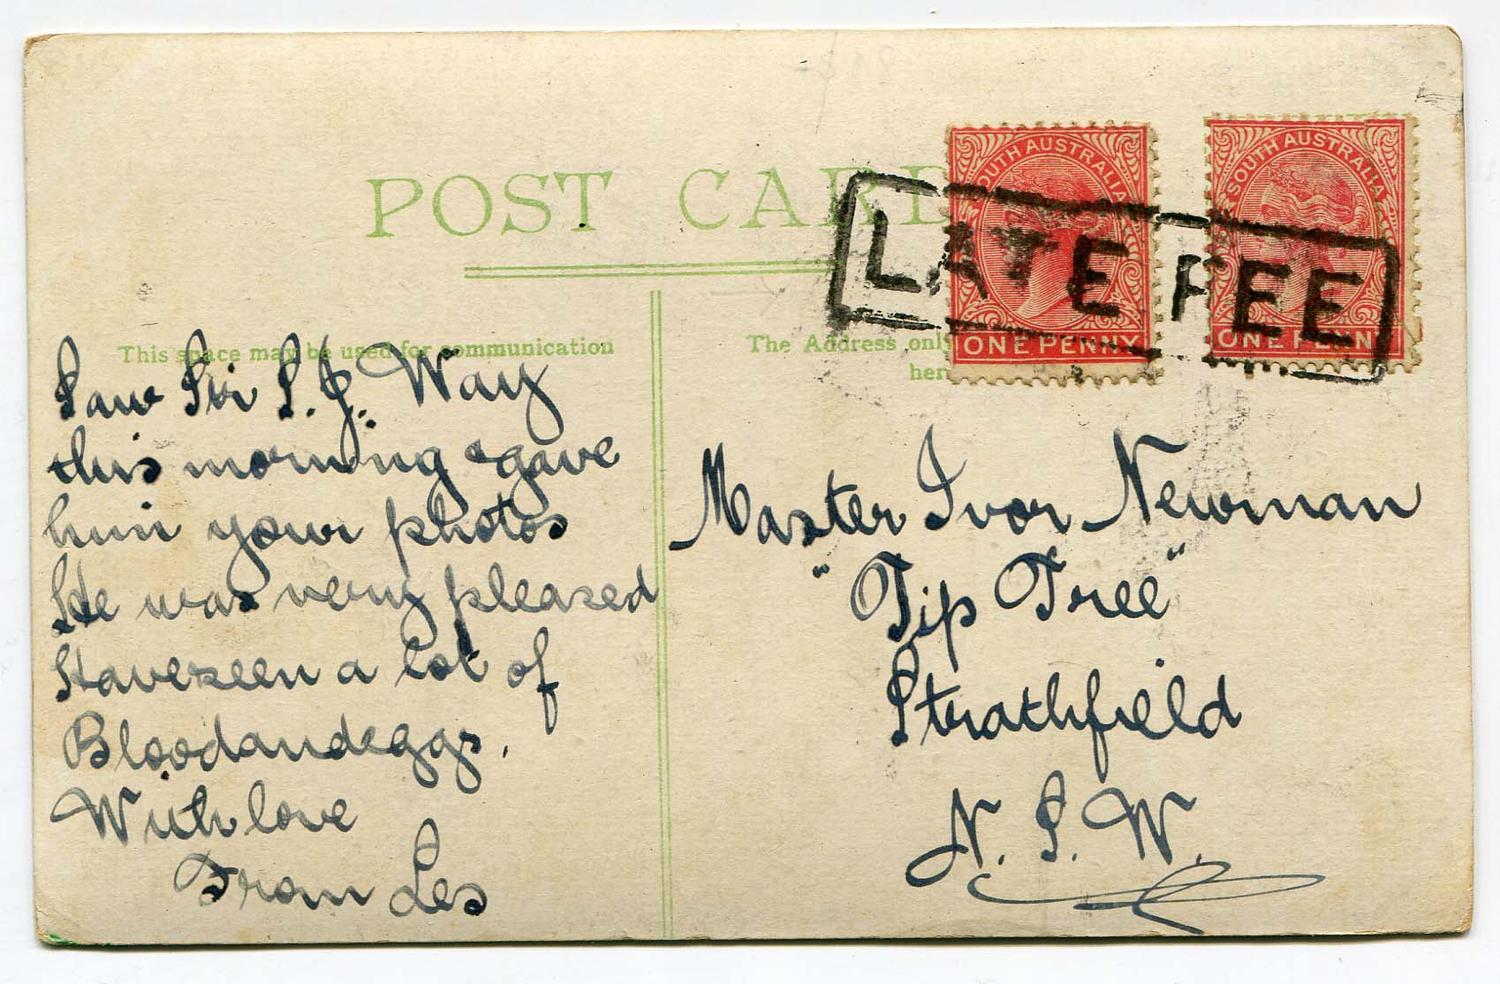 POST CARD
SOUTH AUSTRALIA
ONE PENNY
SOUTH AUSTRALIA
ONE PENNY
LATE FEE
This space may be used for communication
The Address only
here
Saw Sir S. J. Way
this morning & gave
him your photos
He was very pleased
Have seen a lot of
Bloodandeggs.
With love
From Les
Master Ivor Newman
"Tip Tree"
Strathfield
N. S. W.